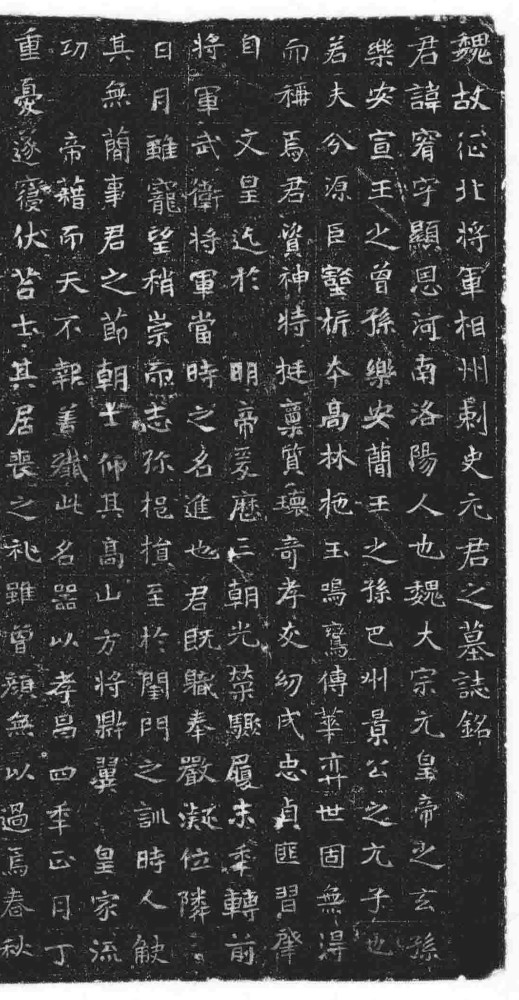 魏故征北將軍相州剌史元君之墓誌銘
君諱宥字顯恩河南洛陽人也魏大宗元皇帝之玄孫
樂安宣王之曾孫樂安蕳王之孫巴州景公之元子也
若夫分源巨壑析本高林柂玉鳴鸞傳華弈世固無淂
而稱焉君資神特挺稟質瓌竒孝友幼成忠貞匪習肇
自 文皇迄於 明帝爰歷三朝光榮驟履未秊轉前
將軍武衛將軍當時之名進也君既職奉嚴凝位隣
日月雖寵望稍崇而志弥挹損至於閨門之訓時人
其無蕳事君之節朝士仰其高山方將鼎翼 皇家流
功 帝籍而天不報善殲此名器以孝昌四秊正月丁
重憂遂寢伏苫士其居喪之礼雖曾顏無以過焉春秋